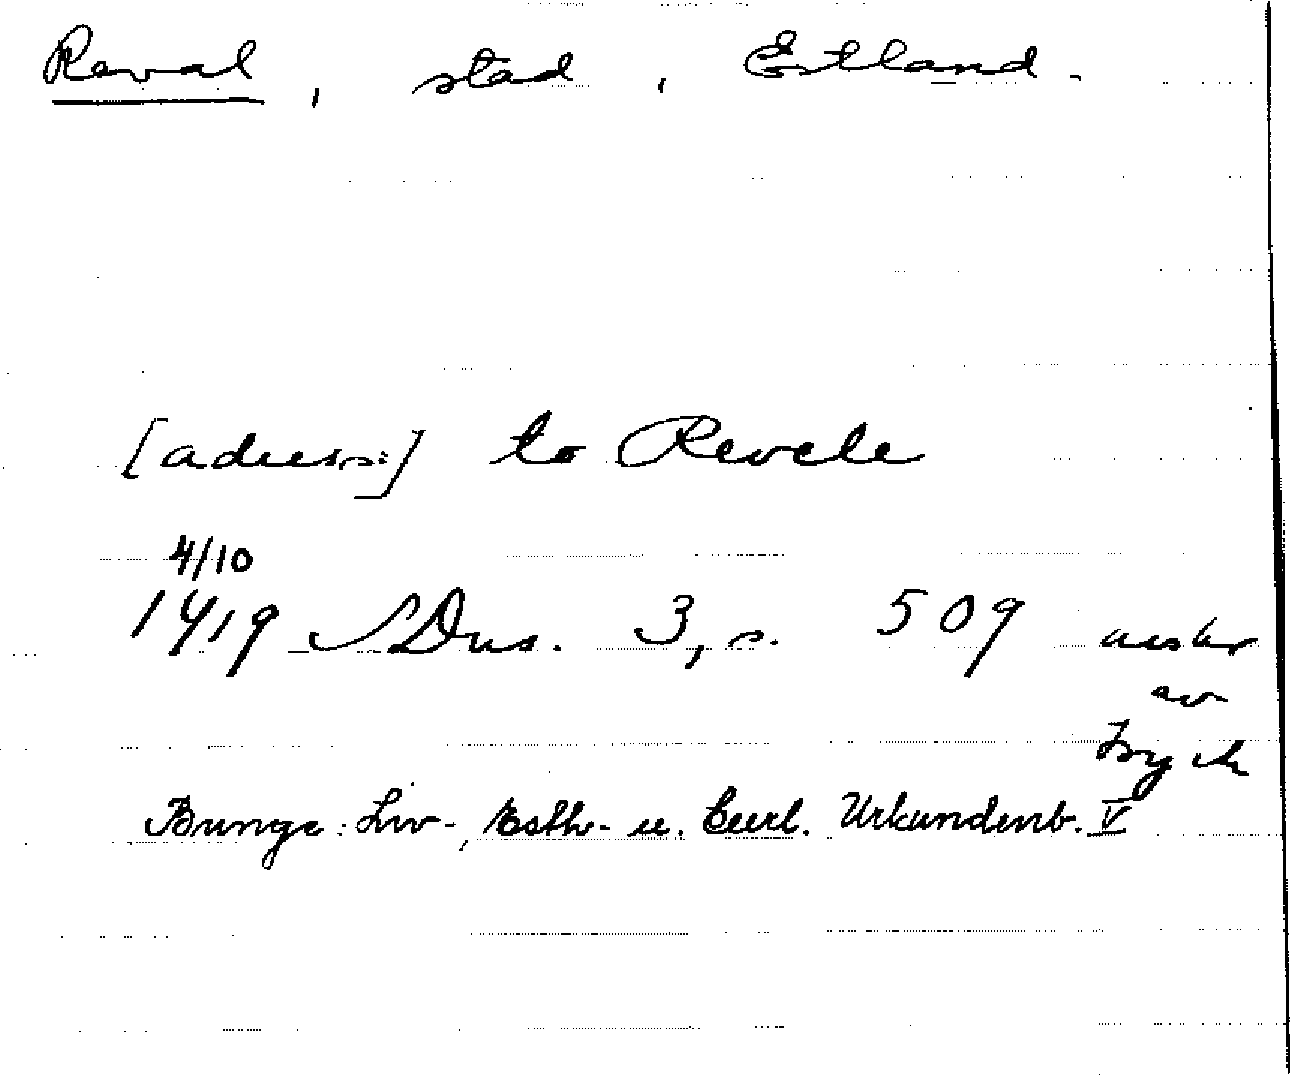 Reval, stad, Estland.
[adress:] to Revele
4/10
1419 SDns. 3, s. 509 avskr
av
tryck
Bunge: Liv-, Esth- u. Curl. Urkundenb. V